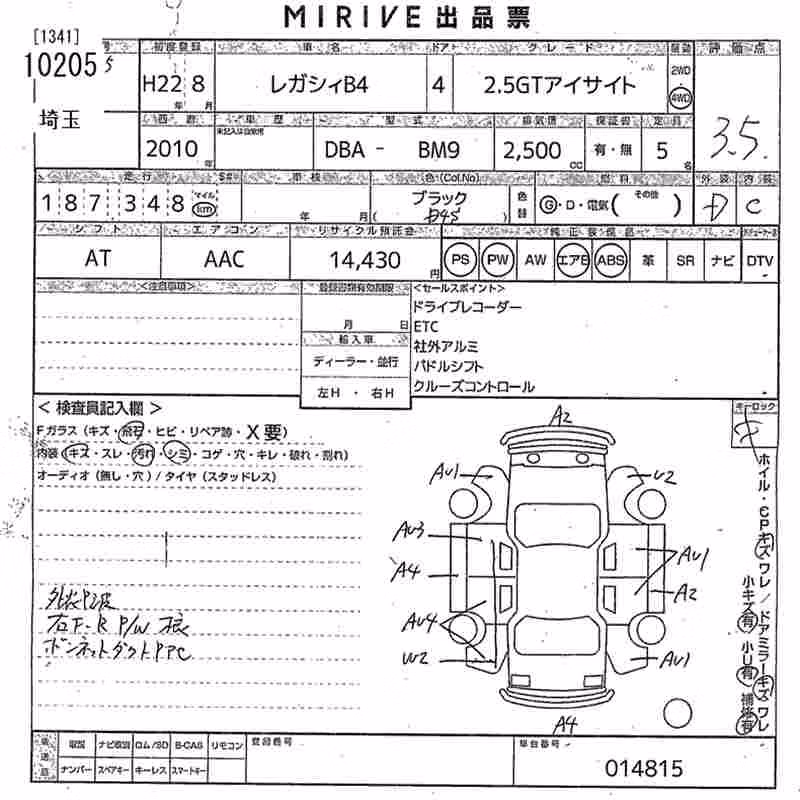 MIRIVE 出品票
[1341]
10205
埼玉
初度登録 車名 ドア グレード 駆動 評価点
H22 8 レガシィB4 4 2.5GTアイサイト 2WD 4WD 3.5
年 月
西暦 車歴 型式 排気量 保証書 定員
2010年 DBA - BM9 2,500 CC 有・無 5名
走行 車検 色(Col.No) 燃料 外装 内装
187348 マイル km 年 月 ブラック 色替 G・D・電気( その他 ) D C
( D4S )
シフト エアコン リサイクル預託金 純正装備品
AT AAC 14,430円 PS PW AW エアB ABS 革 SR ナビ DTV
<注意事項> 登録書類有効期限 <セールスポイント>
ドライブレコーダー
月 日 ETC
輸入車 社外アルミ
ディーラー・並行 パドルシフト
左H・右H クルーズコントロール
< 検査員記入欄 > キーロック
Fガラス (キズ・飛石・ヒビ・リペア跡・X要)
内装 (キズ・スレ・汚れ・シミ・コゲ・穴・キレ・破れ・割れ)
オーディオ (無し・穴) / タイヤ (スタッドレス)
A2
AU1 U2
AU3
A4 AU1
A2
AU4
W2 AU1
A4
ホイル・CPキズワレ / ドアミラーキズワレ
小キズ有 小U有 補修有
右F-R P/W
ボンネットダクト
取説 ナビ取説 ロム/SD B-CAS リモコン 登録番号 車台番号
ナンバー スペアキー キーレス スマートキー 014815